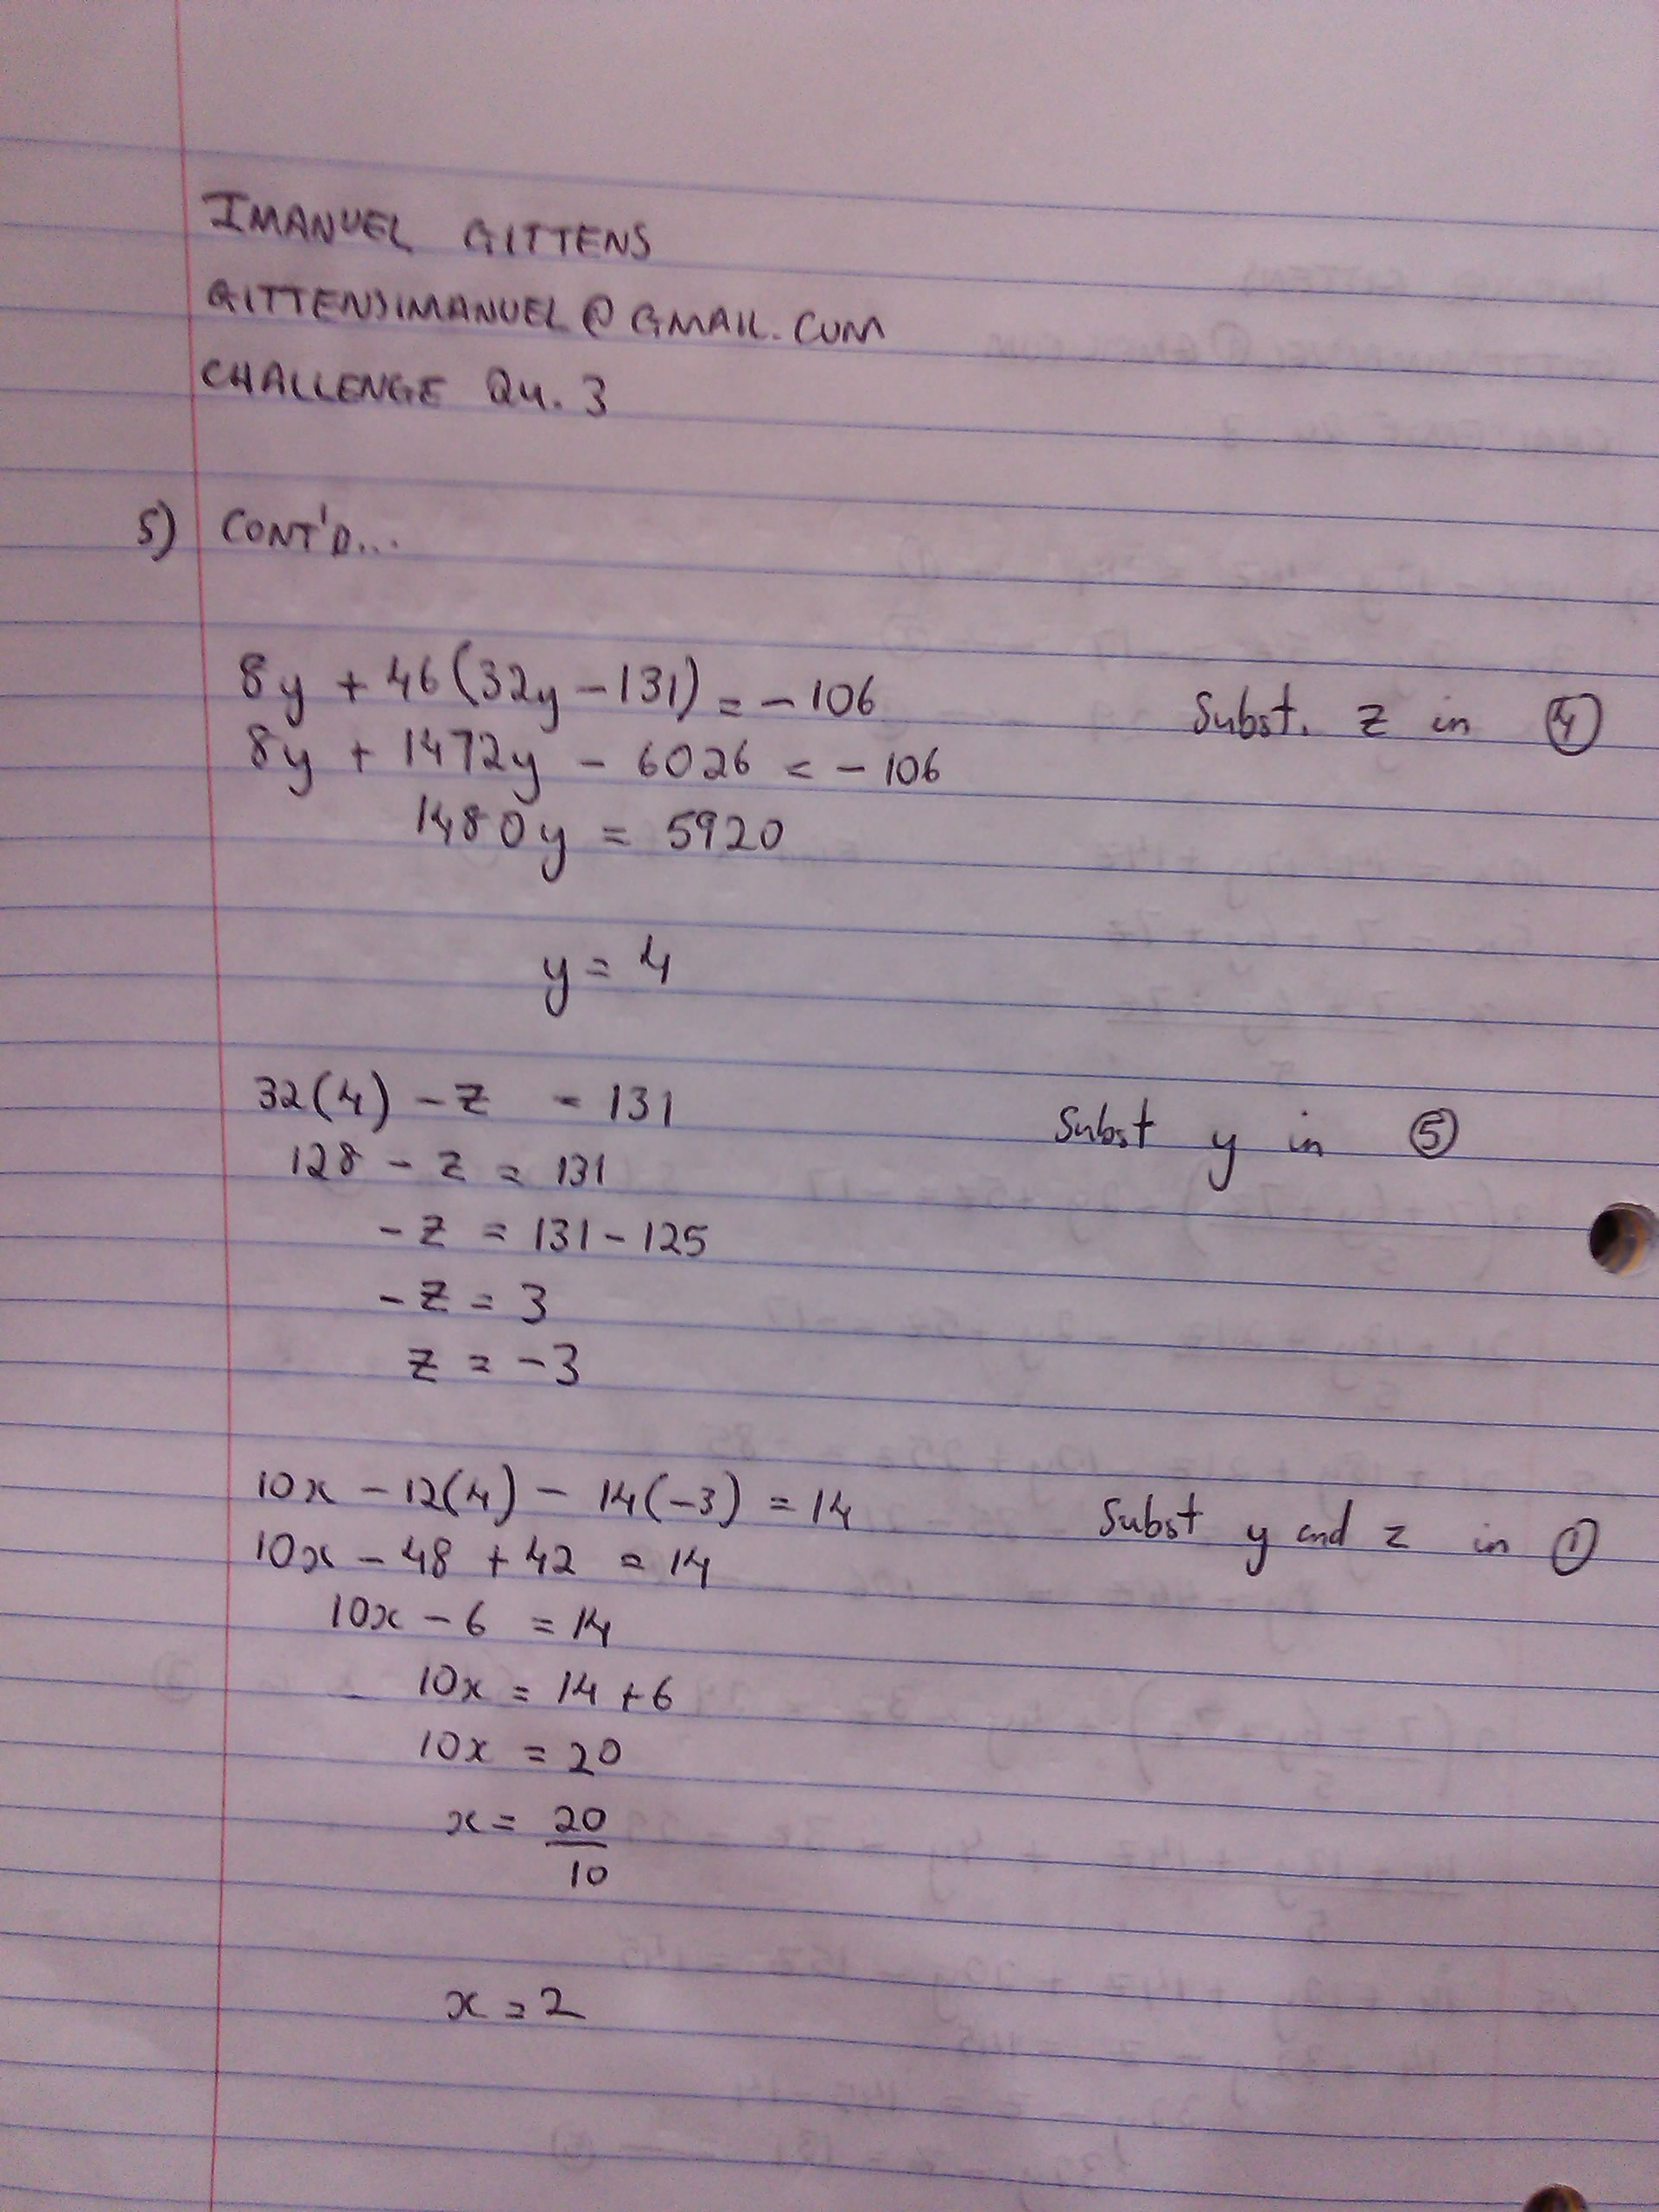 IMANUEL GITTENS
GITTENSIMANUEL@GMAIL.COM
CHALLENGE QU. 3
5) CONT'D...
8y + 46(32y - 131) = - 106 Subst. z in ④
8y + 1472y - 6026 = - 106
1480y = 5920
y = 4
32(4) - z = 131 Subst y in ⑤
128 - z = 131
- z = 131 - 125
- z = 3
z = -3
10x - 12(4) - 14(-3) = 14 Subst y and z in ①
10x - 48 + 42 = 14
10x - 6 = 14
10x = 14 + 6
10x = 20
x = 20
10
x = 2